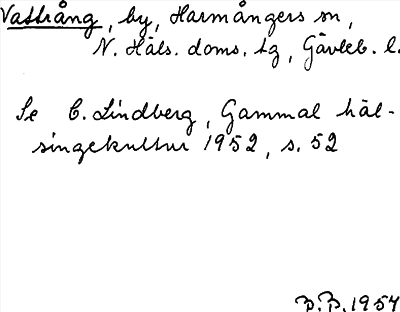 Vattrång, by, Harmångers sn,
N. Häls. doms. tg, Gävleb. l.
Se C. Lindberg, Gammal häl-
singekultur 1952, s. 52
B.B. 1954